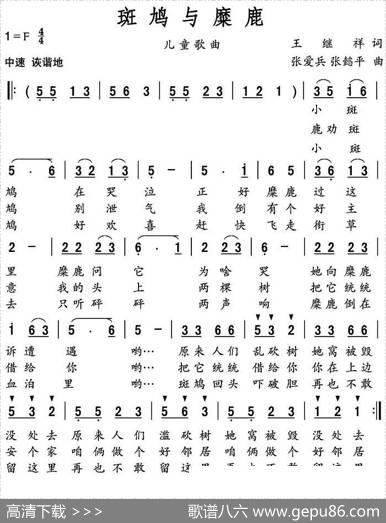 斑鸠与糜鹿
1=F 4/4
儿童歌曲
王继祥 词
中速 诙谐地
张爱兵 张懿平 曲
‖: ( 5 5 1 3 | 5 6 3 | 5 5 1 3 | 5 6 3 ) | 3 5 1 6 |
小斑
鹿劝斑
小斑
5 · 6 | 3 2 1 3 | 5 - | 5 · 1 | 6 6 1 3 |
鸠 在哭泣 正好糜鹿过这
鸠 别泄气 我倒有个好主
鸠 好欢喜 赶快飞走衔草
2 - | 2 2 2 3 | 6 · 1 | 2 2 2 3 | 5 5 6 3 |
里 糜鹿问它 为啥哭 她向糜鹿
意 我的头上 两棵树 把它统统
去 只听砰砰 两声响 糜鹿倒在
1 6 3 | 5 · 6 | 5 - | 2 2 2 3 | 5 3 2 | 5 5 5 3 |
诉遭遇哟… 原来人们乱砍树她窝被毁
借给你哟… 把它统统借给你你在上边
血泊里哟… 斑鸠回头吓破胆再也不敢
5 3 2 | 5 5 5 5 | 5 3 2 | 5 5 5 3 | 2 1 :‖
没处去 原来人们滥砍树 她窝被毁没处去
安个家 咱俩做个好邻居 咱俩做个好邻居
留这里 再也不敢留这里 再也不敢留这里
高清下载 >>>
歌谱八六 www.gepu86.com